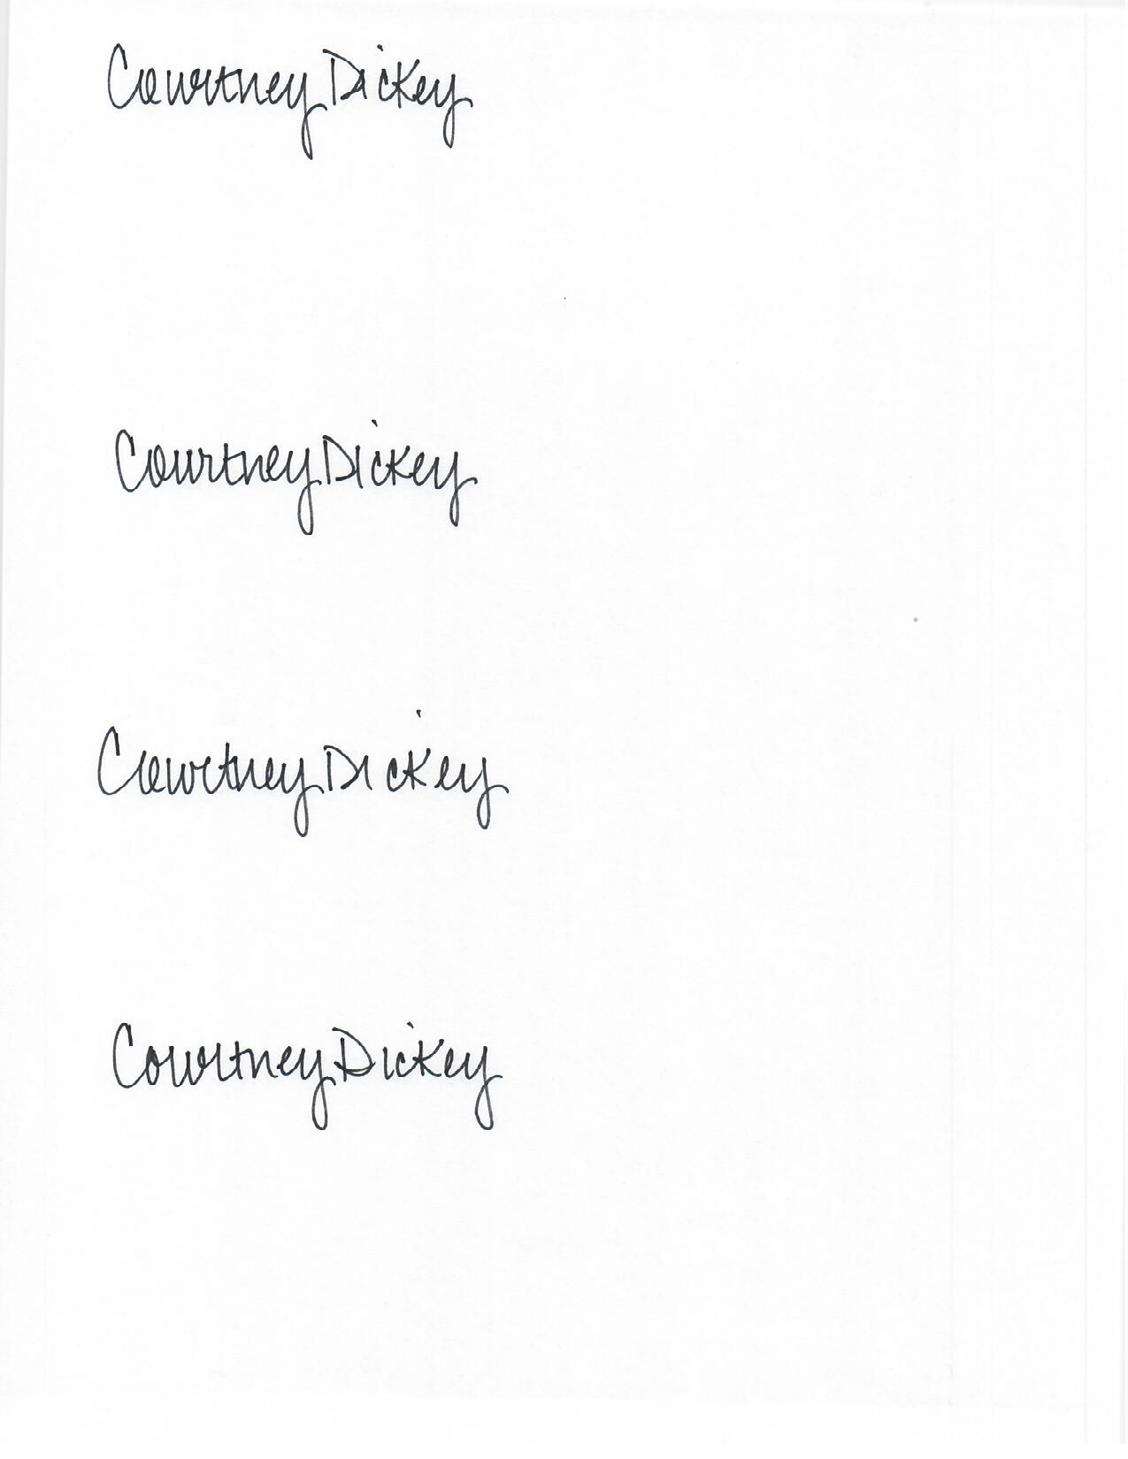 Courtney Dickey
Courtney Dickey
Courtney Dickey
Courtney Dickey